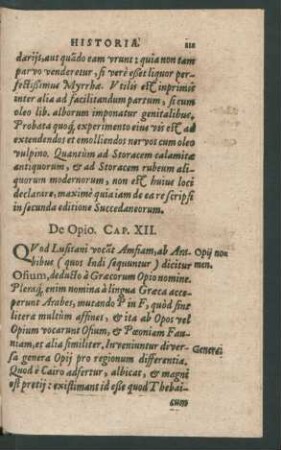 HISTORIA.
darijt, aut quādo eam vrunt: quia non tam
paruo venderetur, si verè esset liquor per-
fectissimus Myrrhæ. Vtilis est inprimis
inter alia ad facilitandum partum, si cum
oleo lib. alborum imponatur genitalibus,
Probata quoq; experimento eius vis est ad
extendendos et emolliendos neruos cum oleo
vulpino. Quantùm ad Storacem calamitæ
antiquorum, & ad Storacem rubeum ali-
quorum modernorum, non est huius loci
declarare, maximè quia iam de ea rescripsi
in secunda editione Succedaneorum.
De Opio. CAP. XII.
QVod Lusitani vocāt Amfiam, ab Ant- Opij no-
bibus (quot Indi sequuntur) dicitur men.
Ofium, deducto à Græcorum Opio nomine.
Plerisq; enim nomina à lingua Græca acce-
perunt Arabes, mutando P in F, quòd sint
literæ multùm affines, & ita ab Opos vel
Opium vocarunt Ofium, & Pœoniam Fau-
niam, et alia similiter. Inueniuntur diuer-
sa genera Opij pro regionum differentia. Genera.
Quod è Cairo adfertur, albicat, & magni
est pretij: existimant id esse quod Thebai-
cum